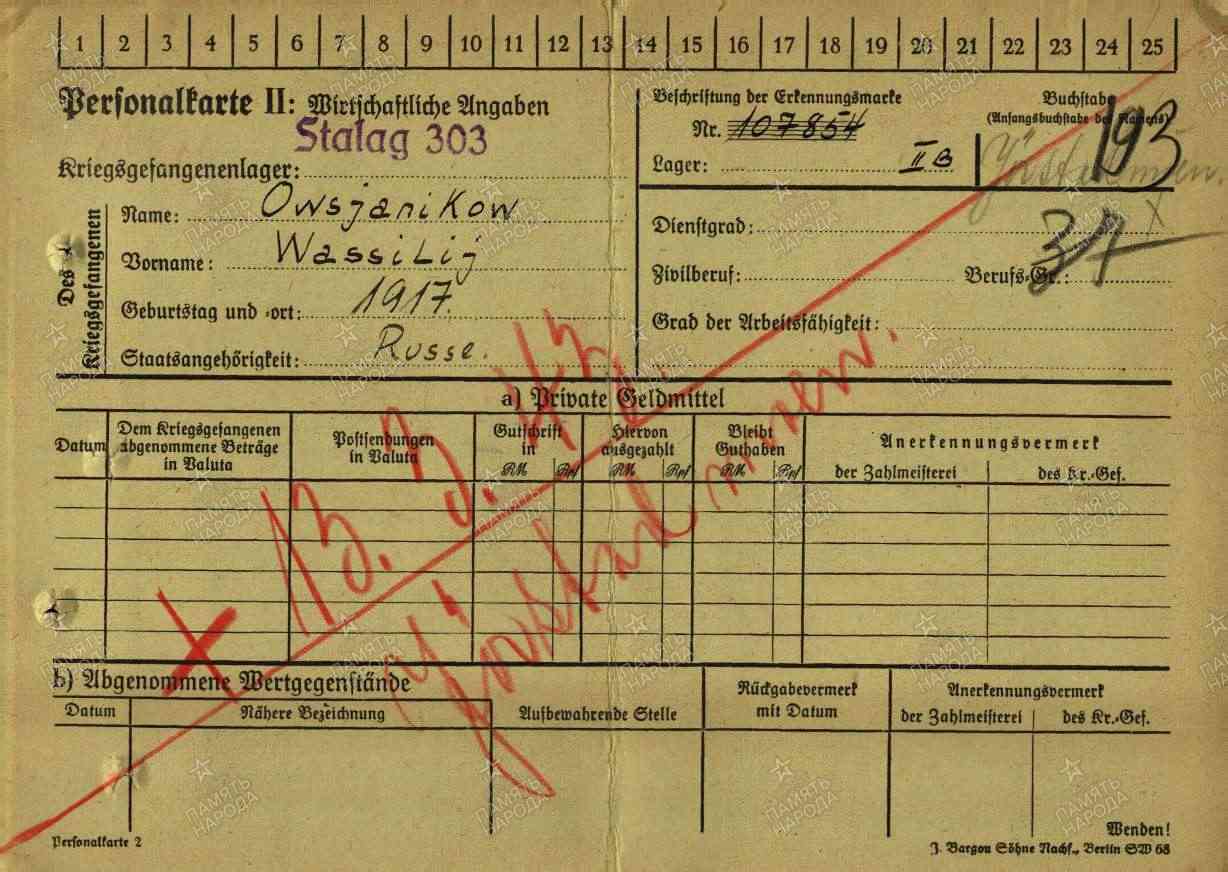 1 2 3 4 5 6 7 8 9 10 11 12 13 14 15 16 17 18 19 20 21 22 23 24 25
Personalkarte II: Wirtschaftliche Angaben
Stalag 303
Kriegsgefangenenlager:
Des Kriegsgefangenen
Name: Owsjanikow
Vorname: Wassilij
Geburtstag und -ort: 1917.
Staatsangehörigkeit: Russe.
Beschriftung der Erkennungsmarke
Nr. 107854
Lager: II B
Buchstabe
(Anfangsbuchstabe des Namens)
193
Dienstgrad:
37
Zivilberuf: Berufs-Gr.:
Grad der Arbeitsfähigkeit:
a) Private Geldmittel
Datum
Dem Kriegsgefangenen abgenommene Beträge in Valuta
Postsendungen in Valuta
Gutschrift in
RM Rpf
Hiervon ausgezahlt
RM Rpf
Bleibt Guthaben
RM Rpf
Anerkennungsvermerk
der Zahlmeisterei des Kr.-Gef.
+ 13. 3. 43.
b) Abgenommene Wertgegenstände
Datum
Nähere Bezeichnung
Aufbewahrende Stelle
Rückgabevermerk mit Datum
Anerkennungsvermerk
der Zahlmeisterei des Kr.-Gef.
Personalkarte 2
Wenden!
J. Bargou Söhne Nachf., Berlin SW 68
ПАМЯТЬ НАРОДА